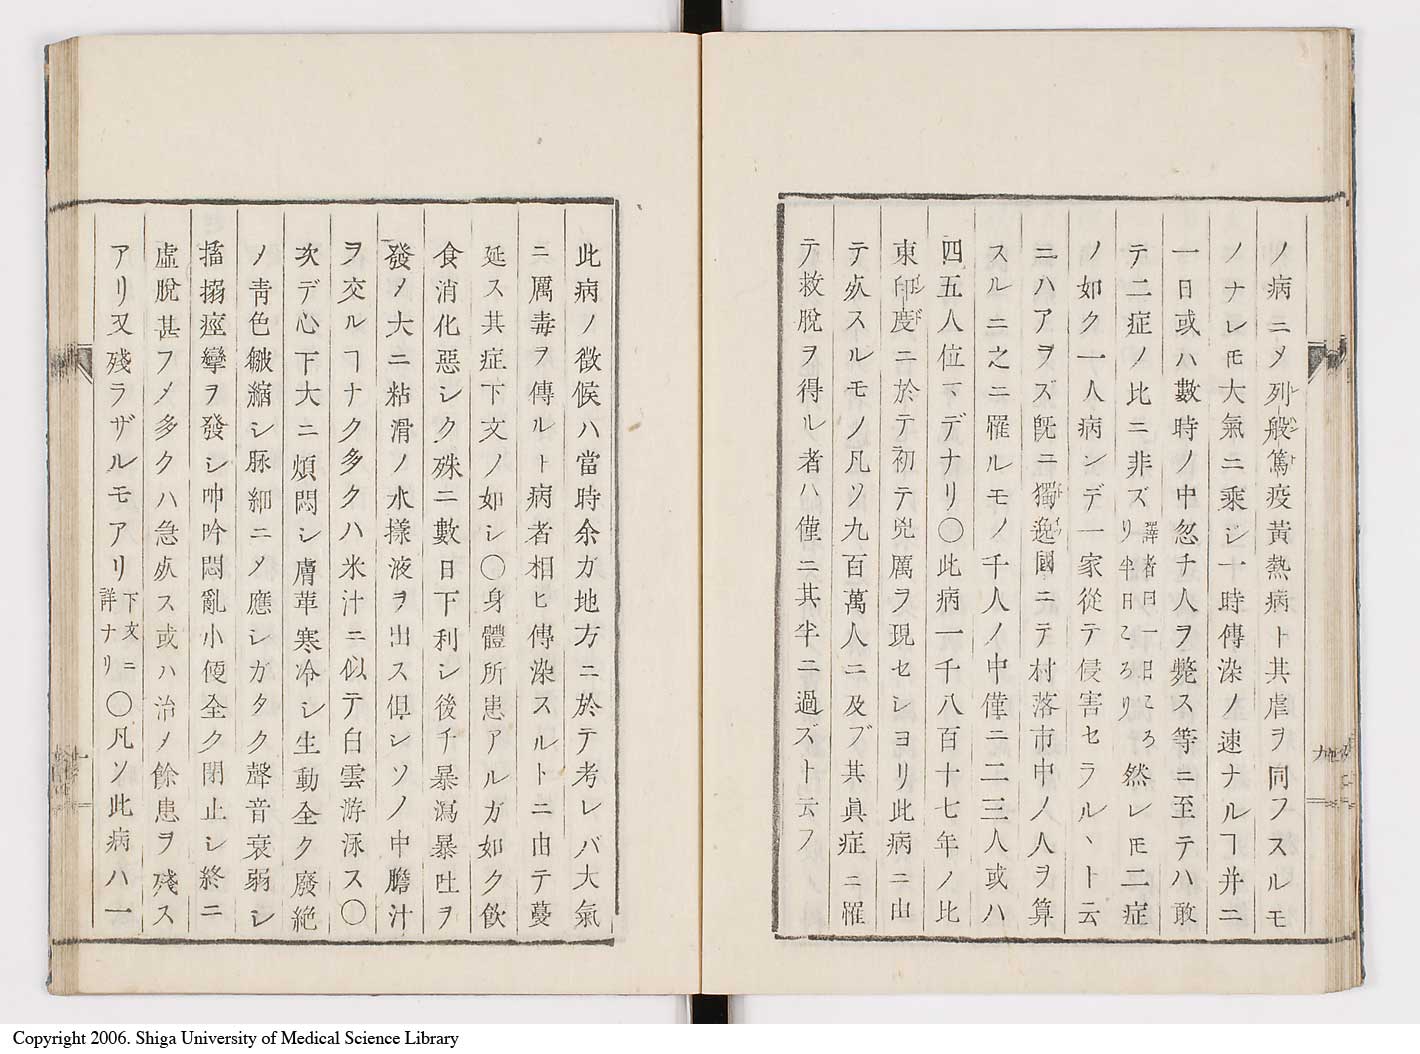 ノ病ニメ列般篤疫黄熱病ト其虐ヲ同フスルモ
ノナレㇺ大氣ニ乘シ一時傳染ノ速ナルヿ并ニ
一日或ハ數時ノ中忽チ人ヲ斃ス等ニ至テハ敢
テ二症ノ比ニ非ズ譯者曰一日ころり半日ころり然レㇺ二症
ノ如ク一人病ンデ一家從テ侵害セラル丶ト云
ニハアラズ既ニ獨逸國ニテ村落市中ノ人ヲ算
スルニ之ニ罹ルモノ千人ノ中僅ニ二三人或ハ
四五人位マデナリ〇此病一千八百十七年ノ比
東印度ニ於テ初テ兇厲ヲ現セシヨリ此病ニ由
テ死スルモノ凡ソ九百萬人ニ及ブ其眞症ニ罹
テ救脱ヲ得ル者ハ僅ニ其半ニ過ズト云フ
此病ノ徴候ハ當時余ガ地方ニ於テ考レバ大氣
ニ厲毒ヲ傳ルト病者相ヒ傳染スルトニ由テ蔓
延ス其症下文ノ如シ〇身體所患アルガ如ク飲
食消化惡シク殊ニ數日下利シ後チ暴瀉暴吐ヲ
發ノ大ニ粘滑ノ水樣液ヲ出ス但シソノ中膽汁
ヲ交ルヿナク多クハ米汁ニ似テ白雲游泳ス〇
次デ心下大ニ煩悶シ膚革寒冷シ生動全ク廢絶
ノ靑色皺縮シ脉細ニメ應シガタク聲音衰弱シ
搐搦痙攣ヲ發シ呻吟悶亂小便全ク閉止シ終ニ
虚脱甚フメ多クハ急死ス或ハ治メ餘患ヲ殘ス
アリ又殘ラザルモアリ下文ニ詳ナリ〇凡ソ此病ハ一
Copyright 2006. Shiga University of Medical Science Library